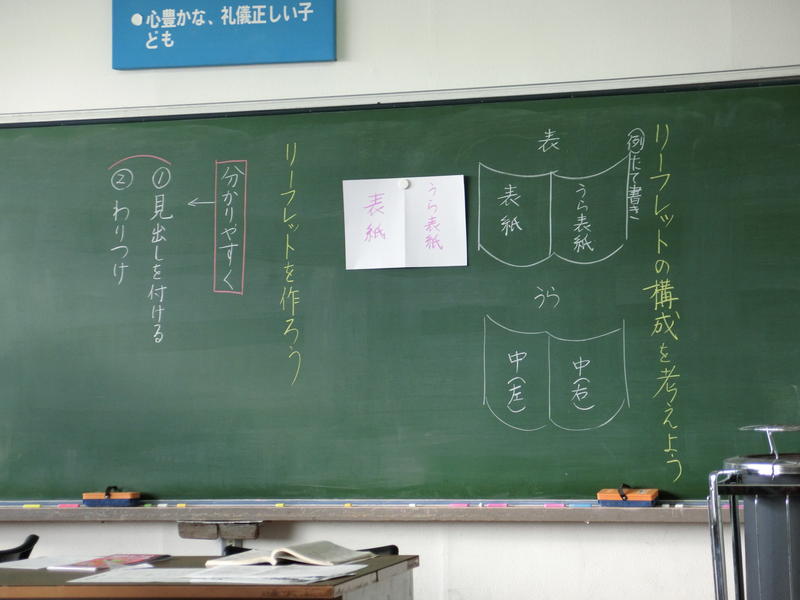 ●心豊かな、礼儀正しい子
ども
リーフレットの構成を考えよう
例たて書き
表
うら表紙
表紙
うら
中(右)
中(左)
うら表紙
表紙
リーフレットを作ろう
分かりやすく
①見出しを付ける
②わりつけ